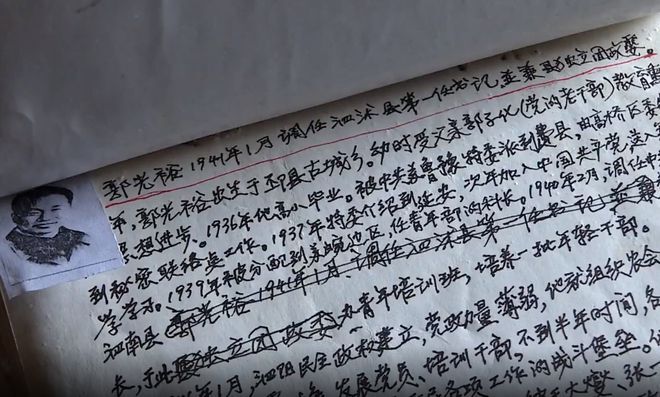 郭光裕1941年1月调任泗沭县第一任书记,並兼县独立团政委。
年,郭光裕出生于邳县古城乡。幼时受父亲郭子化(党的老干部)教育
思想进步。1936年他高小毕业。被中共苏鲁豫特委派到费县、由高桥区委
到秘密联络员工作。1937年特委介绍到延安,次年加入中国共产党进入
学学习。1939年被分配到苏皖边区,任青年部的科长。1940年2月,调任中
泗南县郭光裕1941年1月调任泗沭县第一任书记並兼
长,于此县独立团政委办青年培训班,培养一批年轻干部。
年1月,泗阳民主政权建立,党政力量薄弱,他就组织农会
发展党员、培训干部。不到半年时间,各
各项工作的战斗堡垒。